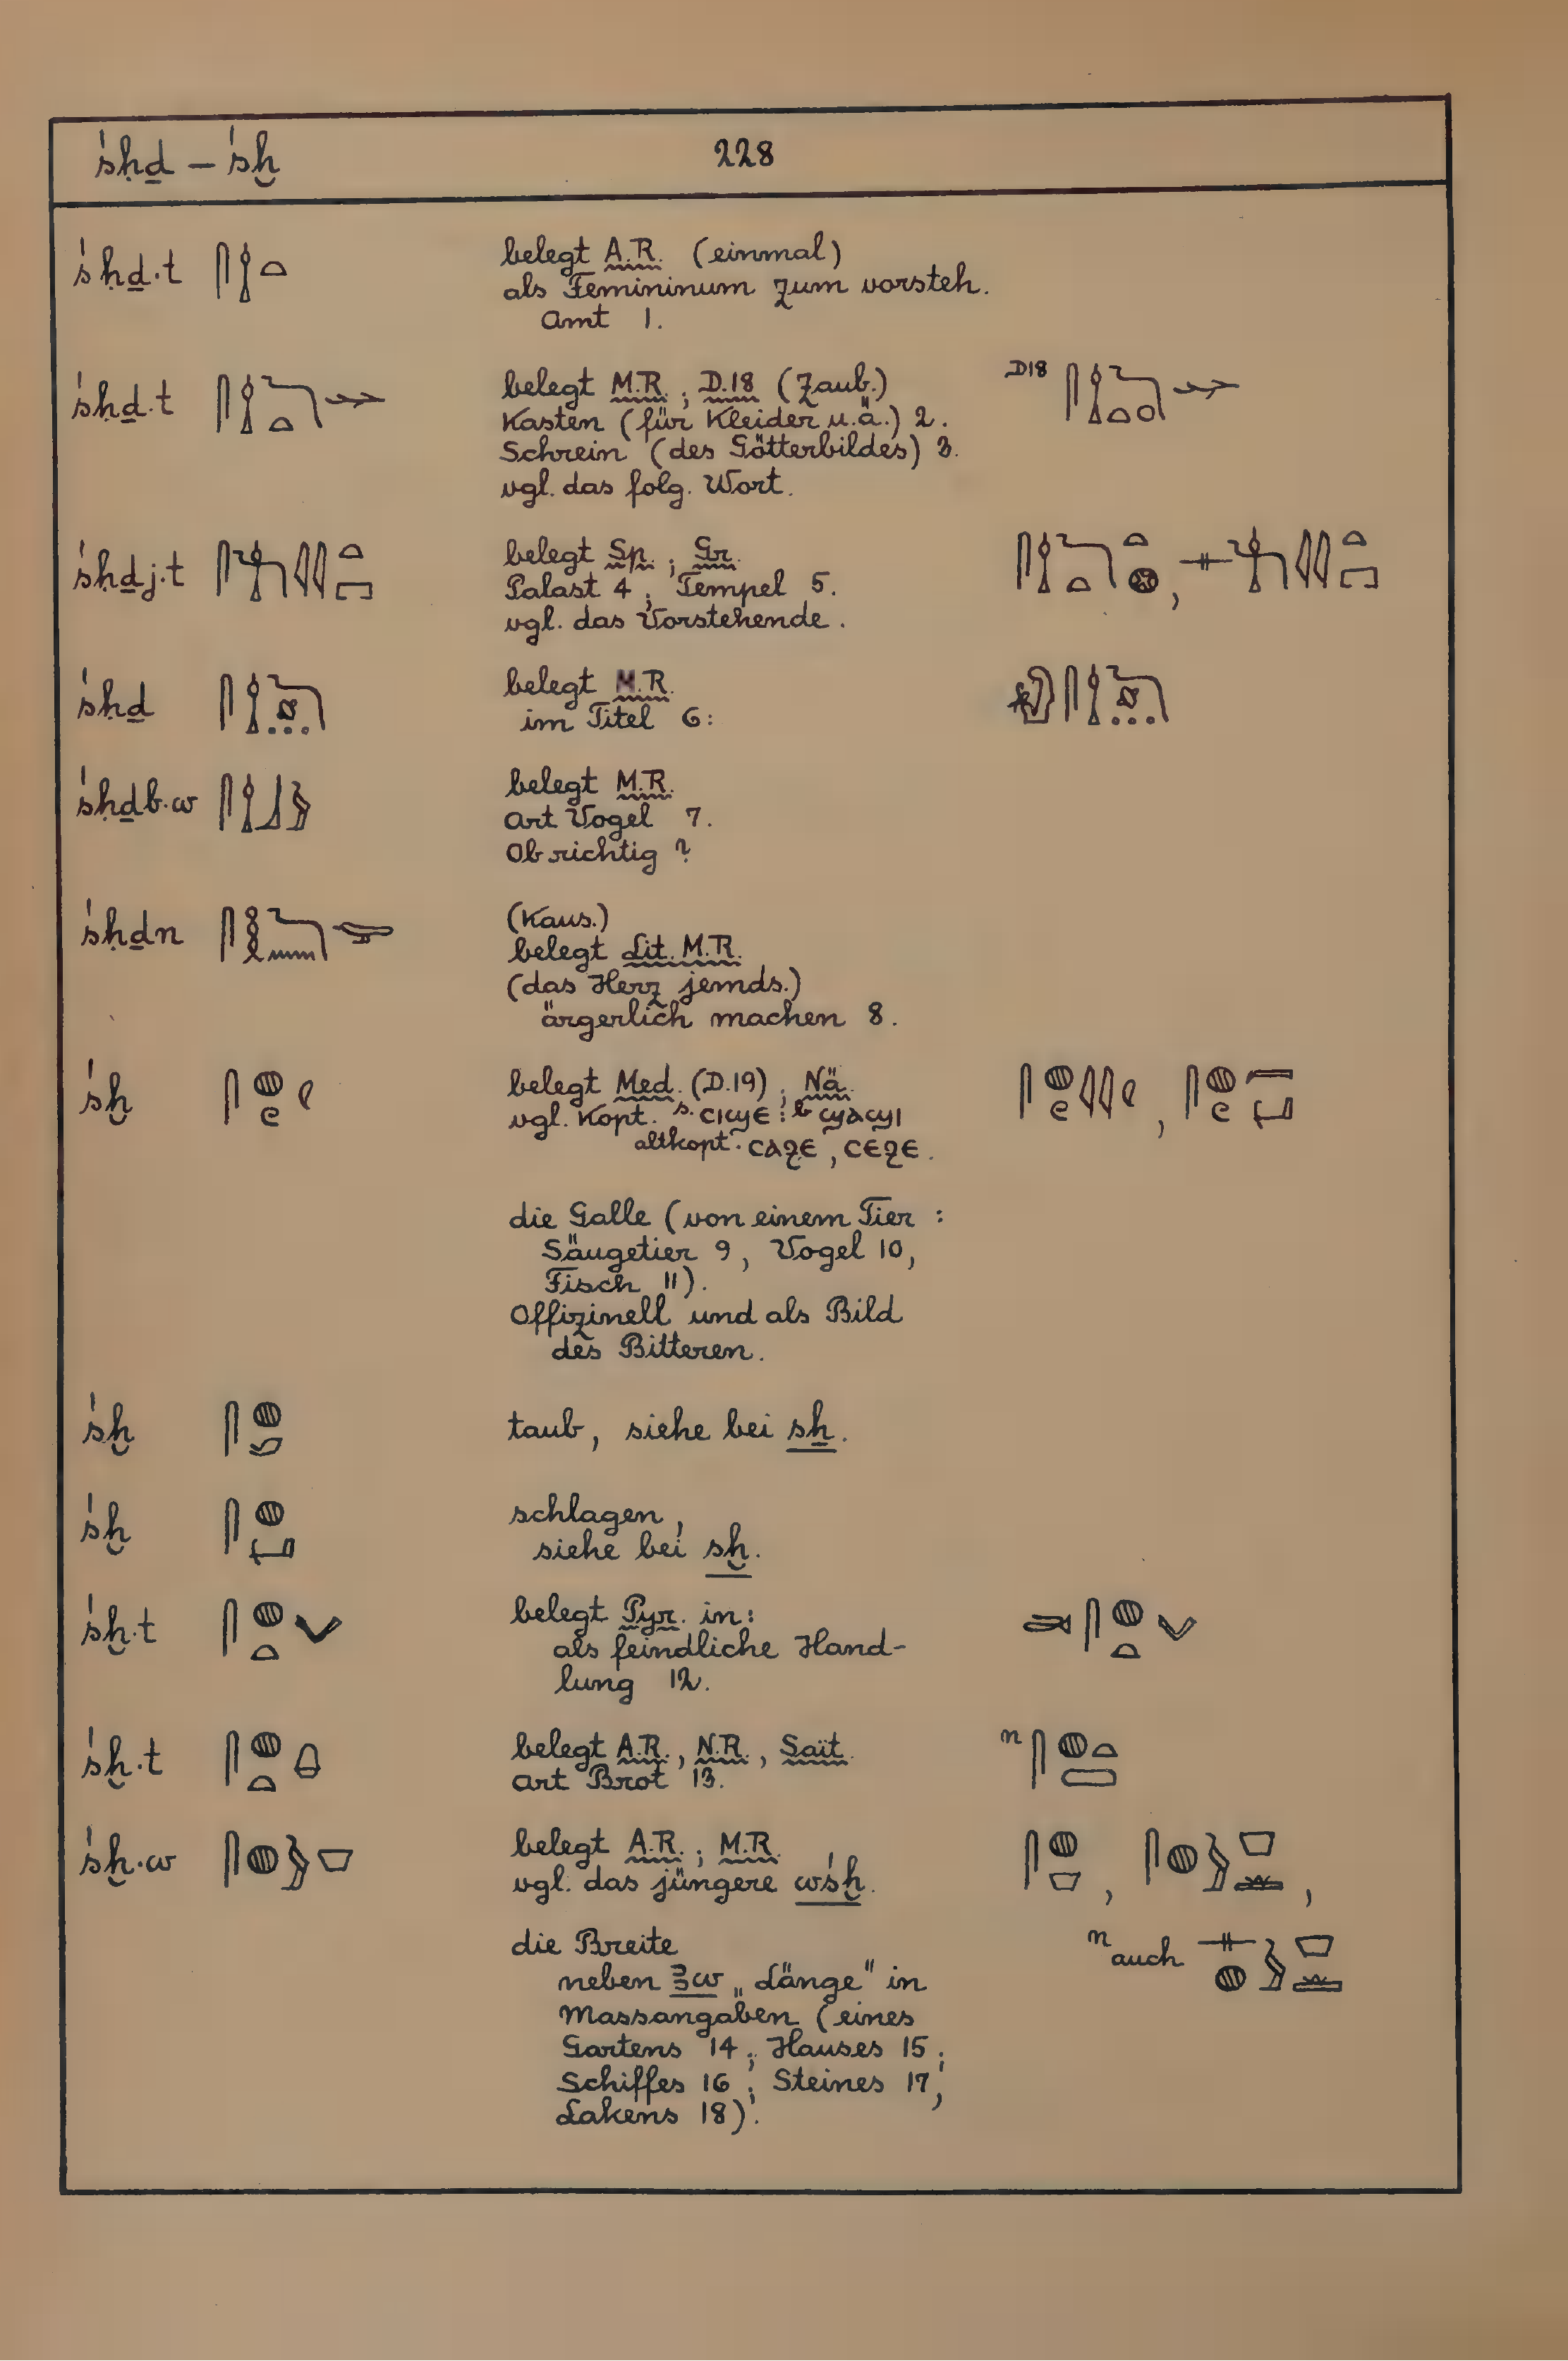 śḥḏ – śḫ 228
śḥḏ.t belegt A.R. (einmal)
als Femininum zum vorsteh.
Amt 1.
śḥḏ.t belegt M.R.; D.18 (Zaub.) D18
Kasten (für Kleider u.ä.) 2.
Schrein (des Götterbildes) 3.
vgl. das folg. Wort.
śḥḏj.t belegt Sp.; Gr.
Palast 4; Tempel 5.
vgl. das Vorstehende.
śḥḏ belegt M.R.
im Titel 6:
śḥḏb.w belegt M.R.
Art Vogel 7.
Ob richtig?
śḥḏn (Kaus.)
belegt Lit. M.R.
(das Herz jemds.)
ärgerlich machen 8.
śḫ belegt Med. (D.19); Nä.
vgl. Kopt. S. ⲥⲓϣⲉ : B ϣⲁϣⲓ
altkopt. ⲥⲁϩⲉ, ⲥⲉϩⲉ.
die Galle (von einem Tier:
Säugetier 9, Vogel 10,
Fisch 11).
Offizinell und als Bild
des Bitteren.
śḫ taub, siehe bei sẖ.
śḫ schlagen,
siehe bei sḫ.
śḫ.t belegt Pyr. in:
als feindliche Hand-
lung 12.
śḫ.t belegt A.R., N.R., Saït. n
Art Brot 13.
śḫ.w belegt A.R.; M.R.
vgl. das jüngere wśḫ.
die Breite n auch
neben ꜣw „Länge" in
Massangaben (eines
Gartens 14; Hauses 15;
Schiffes 16; Steines 17;
Lakens 18).